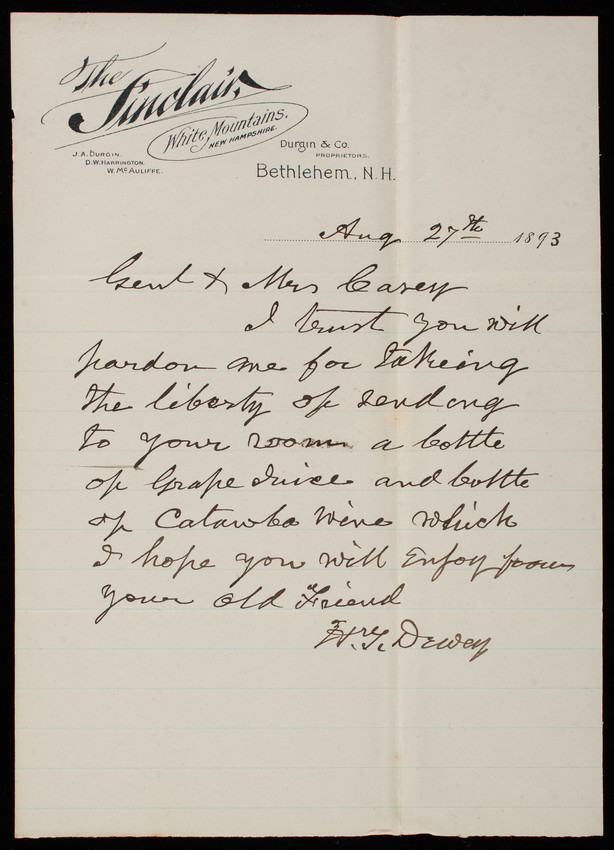 The
Sinclair,
White Mountains.
NEW HAMPSHIRE.
J.A. DURGIN.
D.W. HARRINGTON.
W. McAULIFFE.
Durgin & Co.
PROPRIETORS.
Bethlehem, N.H.
Aug 27th 1893
Genl & Mrs Casey
I trust you will
pardon me for takeing
the liberty of sending
to your room a bottle
of Grape Juice and bottle
of Catawba Wine which
I hope you will Enjoy from
your old Friend
Dewey